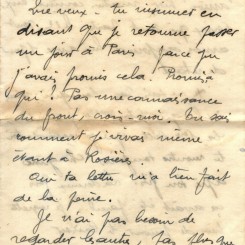 Que veux-tu insinuer en
disant que je retourne passer
un jour à Paris parce que
j'avais promis cela. Promis à
qui ? Pas une connaissance
du front, crois-moi. Tu sais
comment je vivais même
étant à Rosières.
ta lettre m'a bien fait
de la peine.
Je n'ai pas besoin de
regarder les autres, pas plus que